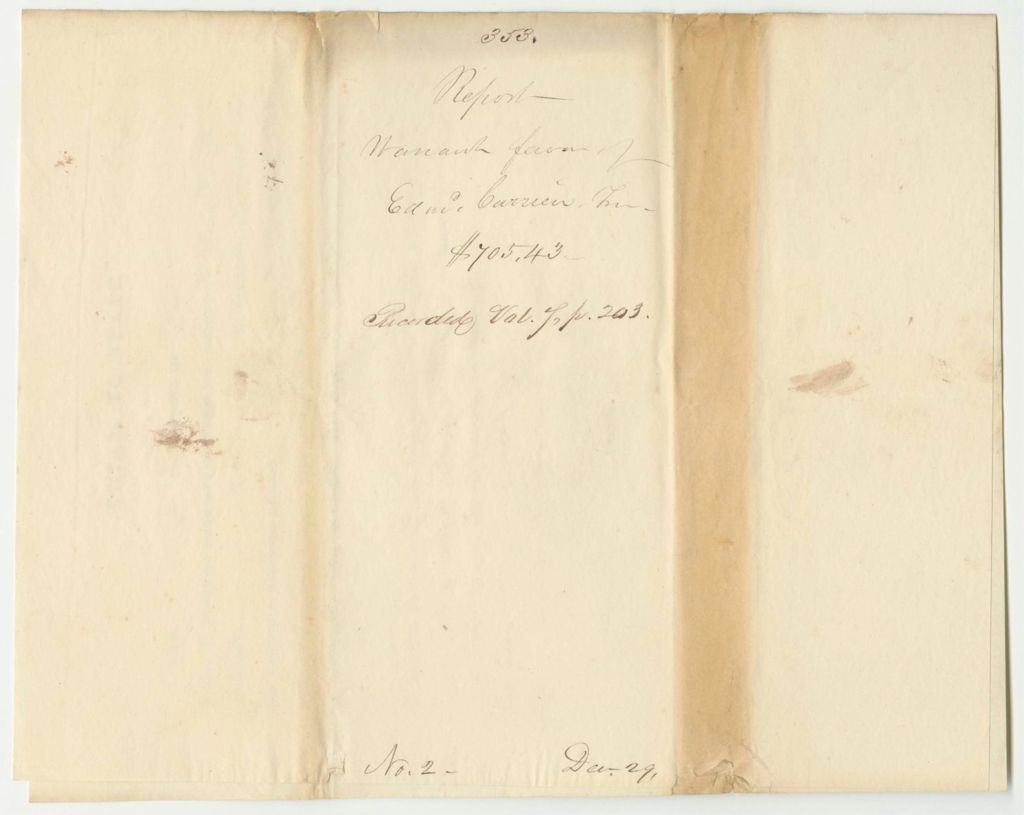 353.
Report
Warrant favor of
Edmd. Currier,
$705.43
Recorded Vol. 7, p. 203.
No. 2 Dec. 29,